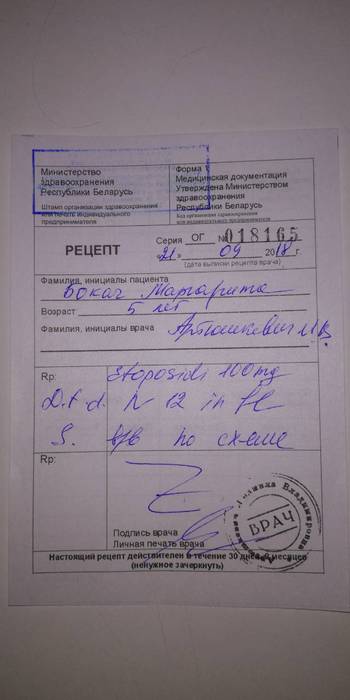 Министерство
здравоохранения
Республики Беларусь
Штамп организации здравоохранения
или печать индивидуального
предпринимателя
Форма 1
Медицинская документация
Утверждена Министерством
здравоохранения
Республики Беларусь
Без организации здравоохранения
или индивидуального предпринимателя
РЕЦЕПТ
Серия ОГ № 018165
«21» 09 2018 г.
(дата выписки рецепта врача)
Фамилия, инициалы пациента
Бокач Маргарита
Возраст 5 лет
Фамилия, инициалы врача Артюшкевич Л.В.
Rp: Etoposidi 100mg
D.t.d. N 12 in fl
S. в/в по схеме
Rp:
Подпись врача
Личная печать врача
ВРАЧ
Владимировна
Настоящий рецепт действителен в течение 30 дней, 6 месяцев
(ненужное зачеркнуть)